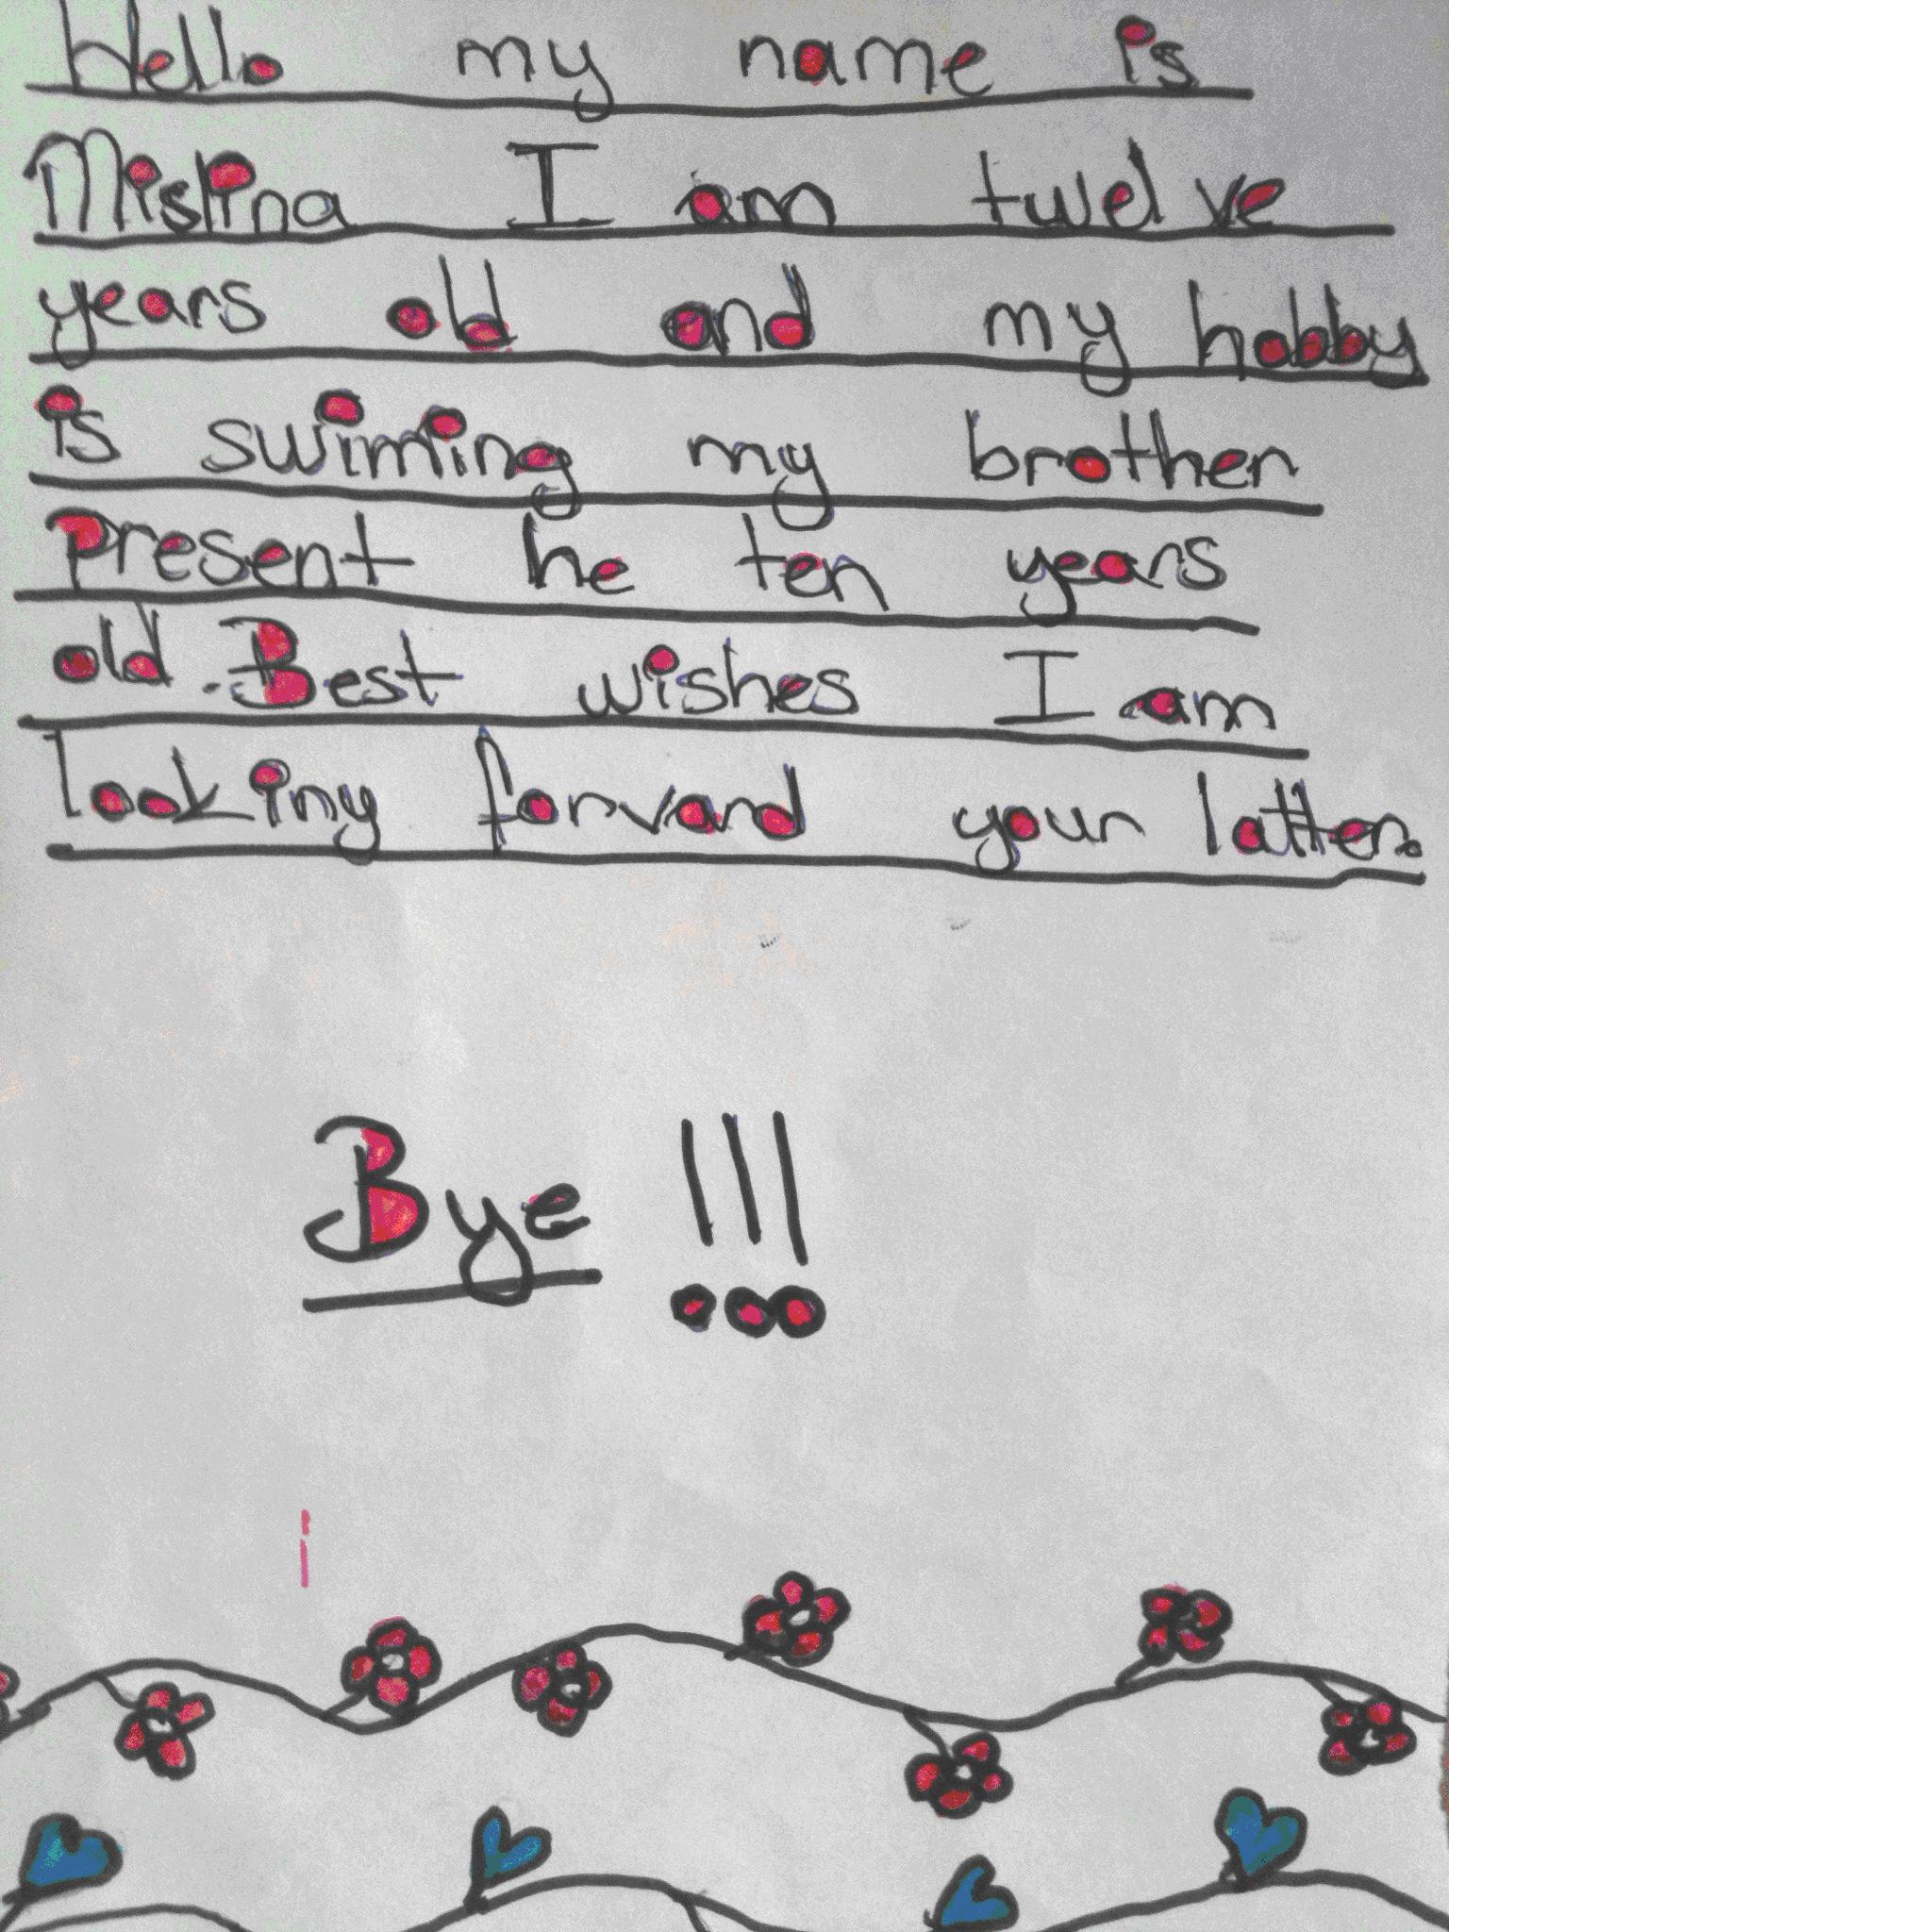 Hello my name is
Mislina I am twelve
years old and my hobby
is swiming my brother
present he ten years
old .Best wishes I am
looking forvard your latter.
Bye !!!
i